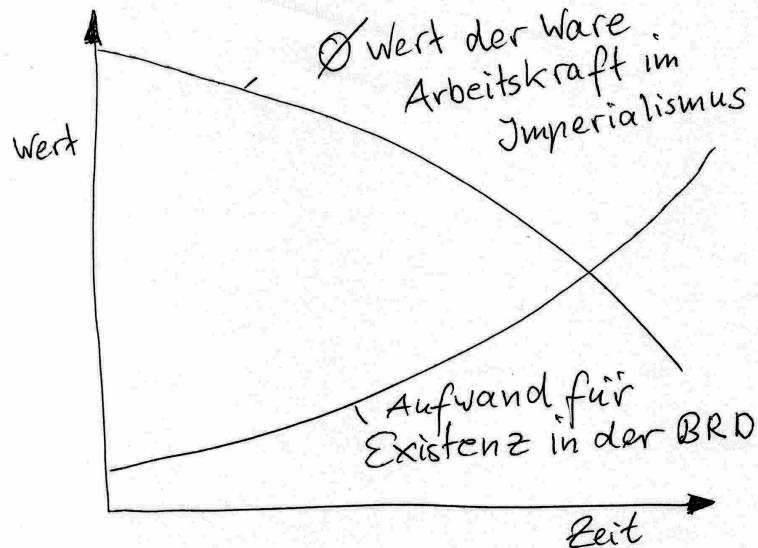 Ø Wert der Ware
Arbeitskraft im
Imperialismus
Wert
Aufwand für
Existenz in der BRD
Zeit